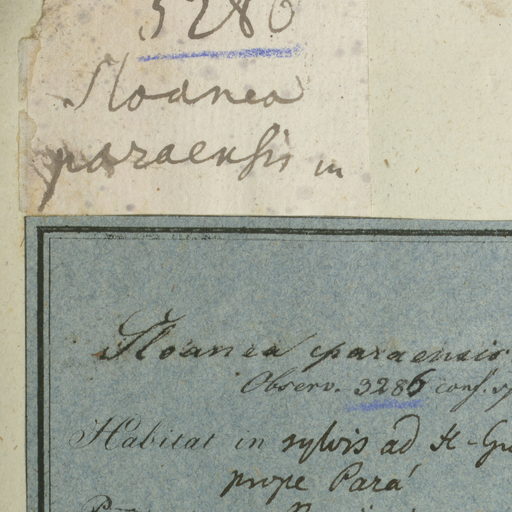 3286
Sloanea
paraensis in
Sloanea paraensis
Observ. 3286 conf. sp
Habitat in sylvis ad
prope Pará